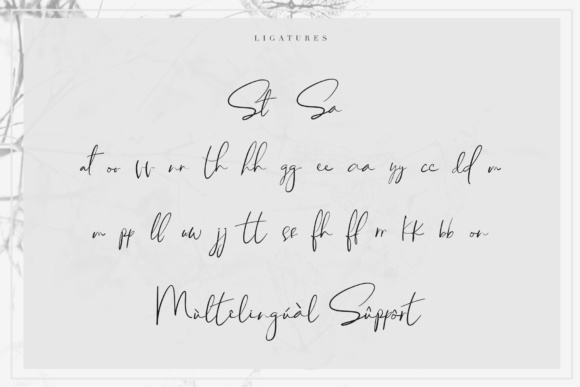 LIGATURES
St Sa
at oo vv nn th hh gg ee aa yy cc dd m
m pp ll uw jj tt ss fh ff rr kk bb on
Mùltelingúàl Sûppórt